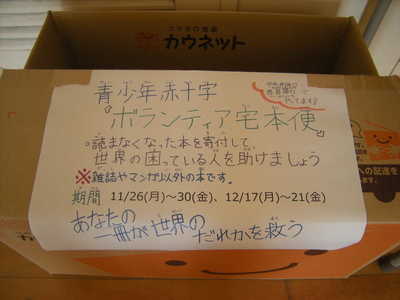 カウネット
青少年赤十字
『ボランティア宅本便』
・読まなくなった本を寄付して、
世界の困っている人を助けましょう
※雑誌やマンガ以外の本です。
期間 11/26(月)～30(金)、12/17(月)～21(金)
あなたの
一冊が世界の
だれかを救う
への配達を